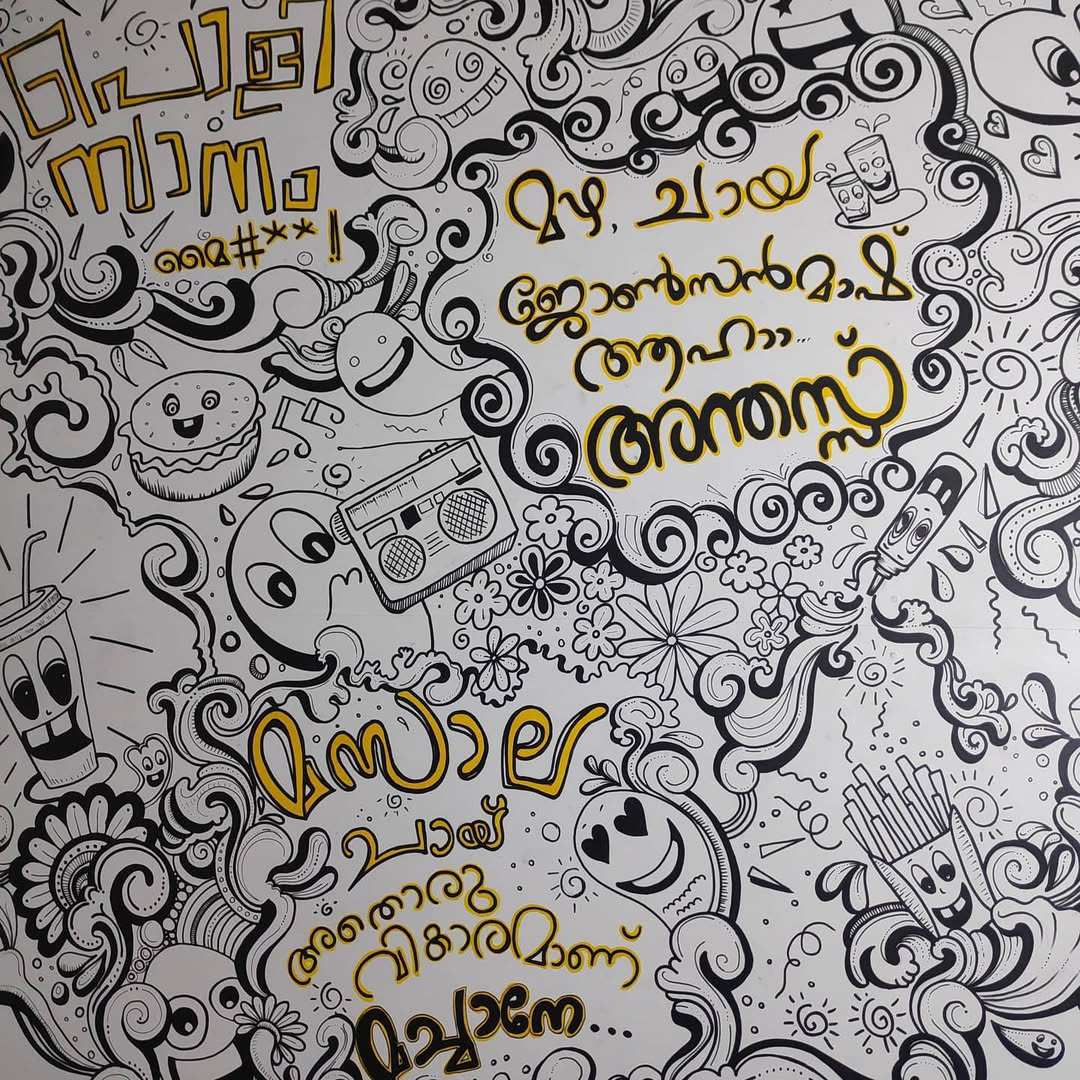 പൊളി
സാനം
മൈ#**!
മഴ, ചായ
ജോൺസൻമാഷ്
ആഹാാ...
അന്തസ്സ്
മസാല
ചായ്
അതൊരു
വികാരമാണ്
മച്ചാനേ...